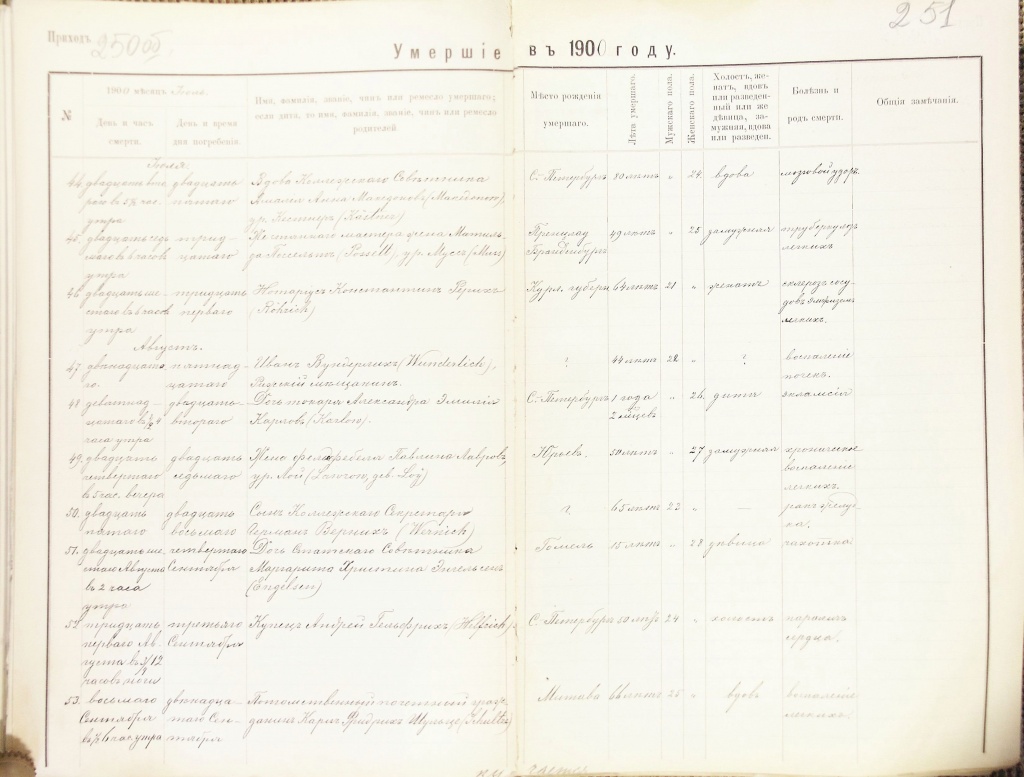 Приходъ 250об.
251
Умершіе въ 1900 году.
№
1900 мѣсяцъ Іюль.
День и часъ смерти.
День и время дня погребенія.
Имя, фамилія, званіе, чинъ или ремесло умершаго;
если дитя, то имя, фамилія, званіе, чинъ или ремесло
родителей
Мѣсто рожденія
умершаго.
Лѣта умершаго.
Мужскаго пола.
Женскаго пола.
Холостъ, же-
натъ, вдовъ
или разведен-
ный или же
дѣвица, за-
мужняя, вдова
или разведен.
Болѣзнь и
родъ смерти.
Общія замѣчанія.
Іюля.
44. двадцать
утра
двадцать
пятаго
Вдова Коллежскаго Совѣтника
Амалія Анна
ур. Кестнеръ (Kästner)
С.-Петербургъ 80 лѣтъ " 24. вдова
45. двадцать седь-
маго в часов
утра
трид-
цатаго
мастера жена Матиль-
да (Posselt), ур. Муссъ
Пренцлау
Бранденбургъ
49 лѣтъ " 25 замужняя туберкулезъ
легкихъ
46 двадцать ше-
стаго
утра
тридцать
перваго
Нотаріусъ Константинъ Рёрихъ
(Röhrich)
Курл. губерн 64 лѣтъ 21 " женатъ склерозъ сосу-
довъ эмфизема
легкихъ.
Августъ.
47. двѣнадцата-
го.
пятнад-
цатаго
Иванъ Вундерлихъ (Wunderlich),
Рижскій мѣщанинъ.
? 44 лѣтъ 22 " ? воспаленіе
почекъ.
48 девятнад-
цатаго
часа утра
двадцать-
втораго
Дочь токаря Александра Эмилія
Карловъ (Karlow).
С.-Петербургъ 1 года
2 м-цевъ
" 26. дитя эклампсія
49. двадцать
четвертаго
въ 5 час. вечера
двадцать
седьмаго
Жена фельдфебеля Павлина Лаврова,
ур. Лой
Юрьевъ. 50 лѣтъ " 27 замужняя хроническое
воспаленіе
легкихъ.
50. двадцать
пятаго
двадцать
восьмаго
Сынъ Коллежскаго Секретаря
Германъ Верникъ (Wernich)
? 65 лѣтъ 23 " — ракъ желуд-
ка.
51. двадцать ше-
стаго Августа
въ 2 часа
утра
четвертаго
Сентября
Дочь Статскаго Совѣтника
Маргарита Христина Энгельсенъ
(Engelsen)
Гомель 15 лѣтъ " 28 дѣвица чахотка.
52. тридцать
перваго Ав-
густа въ
часовъ ночи
третьяго
Сентября
Купецъ Андрей Гельфрихъ
С. Петербургъ 50 лѣтъ 24 " холостъ параличъ
сердца.
53. восьмаго
Сентября
утра
двѣнадца-
таго Сен-
тября
Потомственный почетный граж-
данинъ Карлъ Фридрихъ Шульцъ (Schultz)
Митава 66 лѣтъ 25 " вдовъ воспаленіе
легкихъ.